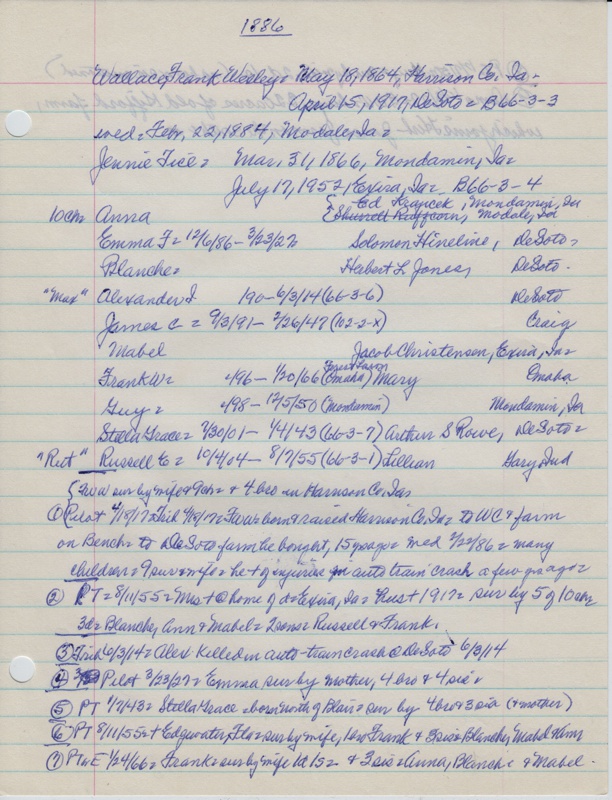 1886
Wallace Frank Wesley = May 18, 1864, Harrison Co. Ia -
April 15, 1917, DeSoto = B66-3-3
wed = Febr. 22, 1884, Modale, Ia =
Jennie Tice = Mar. 31, 1866, Mondamin, Ia =
July 17, 1952, Exira, Ia = B66-3-4
{ Ed Krajicek, Mondamin, Ia
10 ch = Anna { Modale, Ia
Emma F = 12/6/86 - 3/23/27 Solomon Hineline, DeSoto =
Blanche = Hebert L Jones, DeSoto -
"Max" Alexander I. 190 - 6/3/14 (66-3-6) DeSoto
James C = 9/3/91 - 2/26/47 (102-2-X) Craig
Mabel Jacob Christensen, Exira, Ia =
Forest Lawn
Frank W = 2/96 - 1/20/66 (Omaha) Mary Omaha
Guy = 2/98 - 12/5/50 (Mondamin) Mondamin, Ia
Stella Grace = 7/30/01 - 1/4/43 (66-3-7) Arthur S Rowe, DeSoto =
"Rut" Russell E = 10/4/04 - 8/7/55 (66-3-1) Lillian Gary Ind
sur by wife & 9 ch = & 4 bro in Harrison Co. Ia =
① Pilot 4/18/17 Trib 4/19/17 = born & raised Harrison Co. Ia = to WC & farm
on Bench = to DeSoto farm he bought, 15 yrs ago = wed 2/22/86 = many
children = 9 sur & wife = he + of injuries in auto train crash a few yrs ago =
② PT = 8/11/55 = Mrs + @ home of d = Exira, Ia = 1917 = sur by 5 of 10 ch =
3 d = Blanche, Ann & Mabel = 2 sons = Russell & Frank.
③ Trib 6/3/14 = Alex killed in auto-train crash @ DeSoto 6/3/14
④ Pilot 3/23/27 = Emma sur by mother, 4 bro & 4 sis =
⑤ PT 1/7/43 = Stella Grace = born north of Blair = sur by 4 bro & 3 sis (& mother)
⑥ PT 8/11/55 = + Edgewater, Fla = sur by wife, 1 bro Frank & 3 sis = Blanche, Mabel & Ann
⑦ PT & E 1/24/66 = Frank = sur by wife 1 d 1 s = & 3 sis = Anna, Blanche & Mabel -